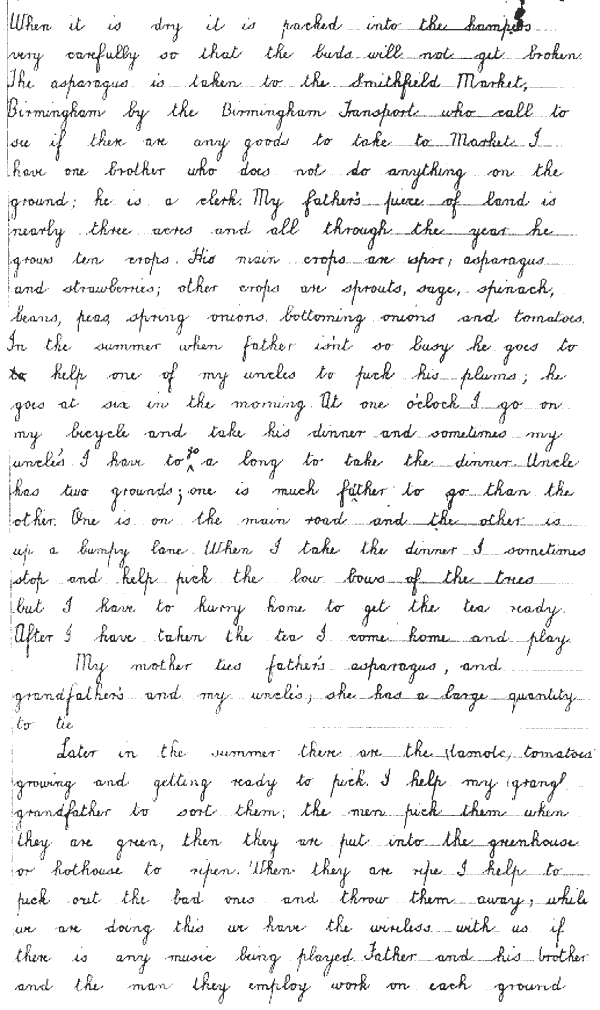 When it is dry it is packed into the hampers
very carefully so that the buds will not get broken.
The asparagus is taken to the Smithfield Market,
Birmingham by the Birmingham Transport who call to
see if there are any goods to take to Market. I
have one brother who does not do anything on the
ground; he is a clerk. My father's piece of land is
nearly three acres and all through the year he
grows ten crops. His main crops are asparagus
and strawberries; other crops are sprouts, sage, spinach,
beans, peas, spring onions, bottoming onions and tomatoes.
In the summer when father isn't so busy he goes to
to help one of my uncles to pick his plums; he
goes at six in the morning. At one o'clock I go on
my bicycle and take his dinner and sometimes my
uncle's. I have to go a long to take the dinner. Uncle
has two grounds; one is much father to go than the
other. One is on the main road and the other is
up a bumpy lane. When I take the dinner I sometimes
stop and help pick the low bows of the trees
but I have to hurry home to get the tea ready.
After I have taken the tea I come home and play.
My mother ties father's asparagus, and
grandfather's and my uncle's, she has a large quantity
to tie
Later in the summer there are the (tamotc) tomatoes
growing and getting ready to pick. I help my (grangf
grandfather to sort them; the men pick them when
they are green, then they are put into the greenhouse
or hothouse to ripen. When they are ripe I help to
pick out the bad ones and throw them away, while
we are doing this we have the wireless with us if
there is any music being played. Father and his brother
and the man they employ work on each ground